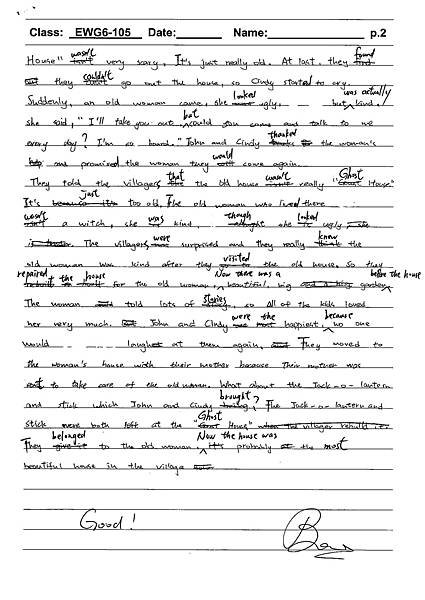 Class: EWG6-105 Date: Name: p.2
wasn't found
House" isn't very scary, It's just really old. At last, they find
couldn't
out they go out the house, so Cindy started to cry.
looked was actually
Suddenly, an old woman came, she ugly, but kind.
but
she said, "I'll take you out, could you come and talk to me
thanked
every day? I'm so bored." John and Cindy the woman's
would
help and promised the woman they come again.
that wasn't Ghost
They told the villagers the old house really " House"
just
It's too old, the old woman who lived there
wasn't was though looked
a witch, she kind, she is ugly, she
were know
The villagers surprised and they really think the
visited
old woman was kind after they the old house. So they
repaired the house Now there was a before the house
for the old woman, beautiful, big garden
stories
The woman told lots of , so All of the kids loved
were the because
her very much. John and Cindy happiest, no one
would laugh at them again, They moved to
the woman's house with their mother because their mother was
to take care of the old woman. What about the Jack-o-lantern
brought?
and stick which John and Cindy The Jack-o-lantern and
Ghost
stick were both left at the " House" when the villager rebuilt it.
belonged Now the house was
They give it to the old woman. It's probably the most
beautiful house in the village
Good!